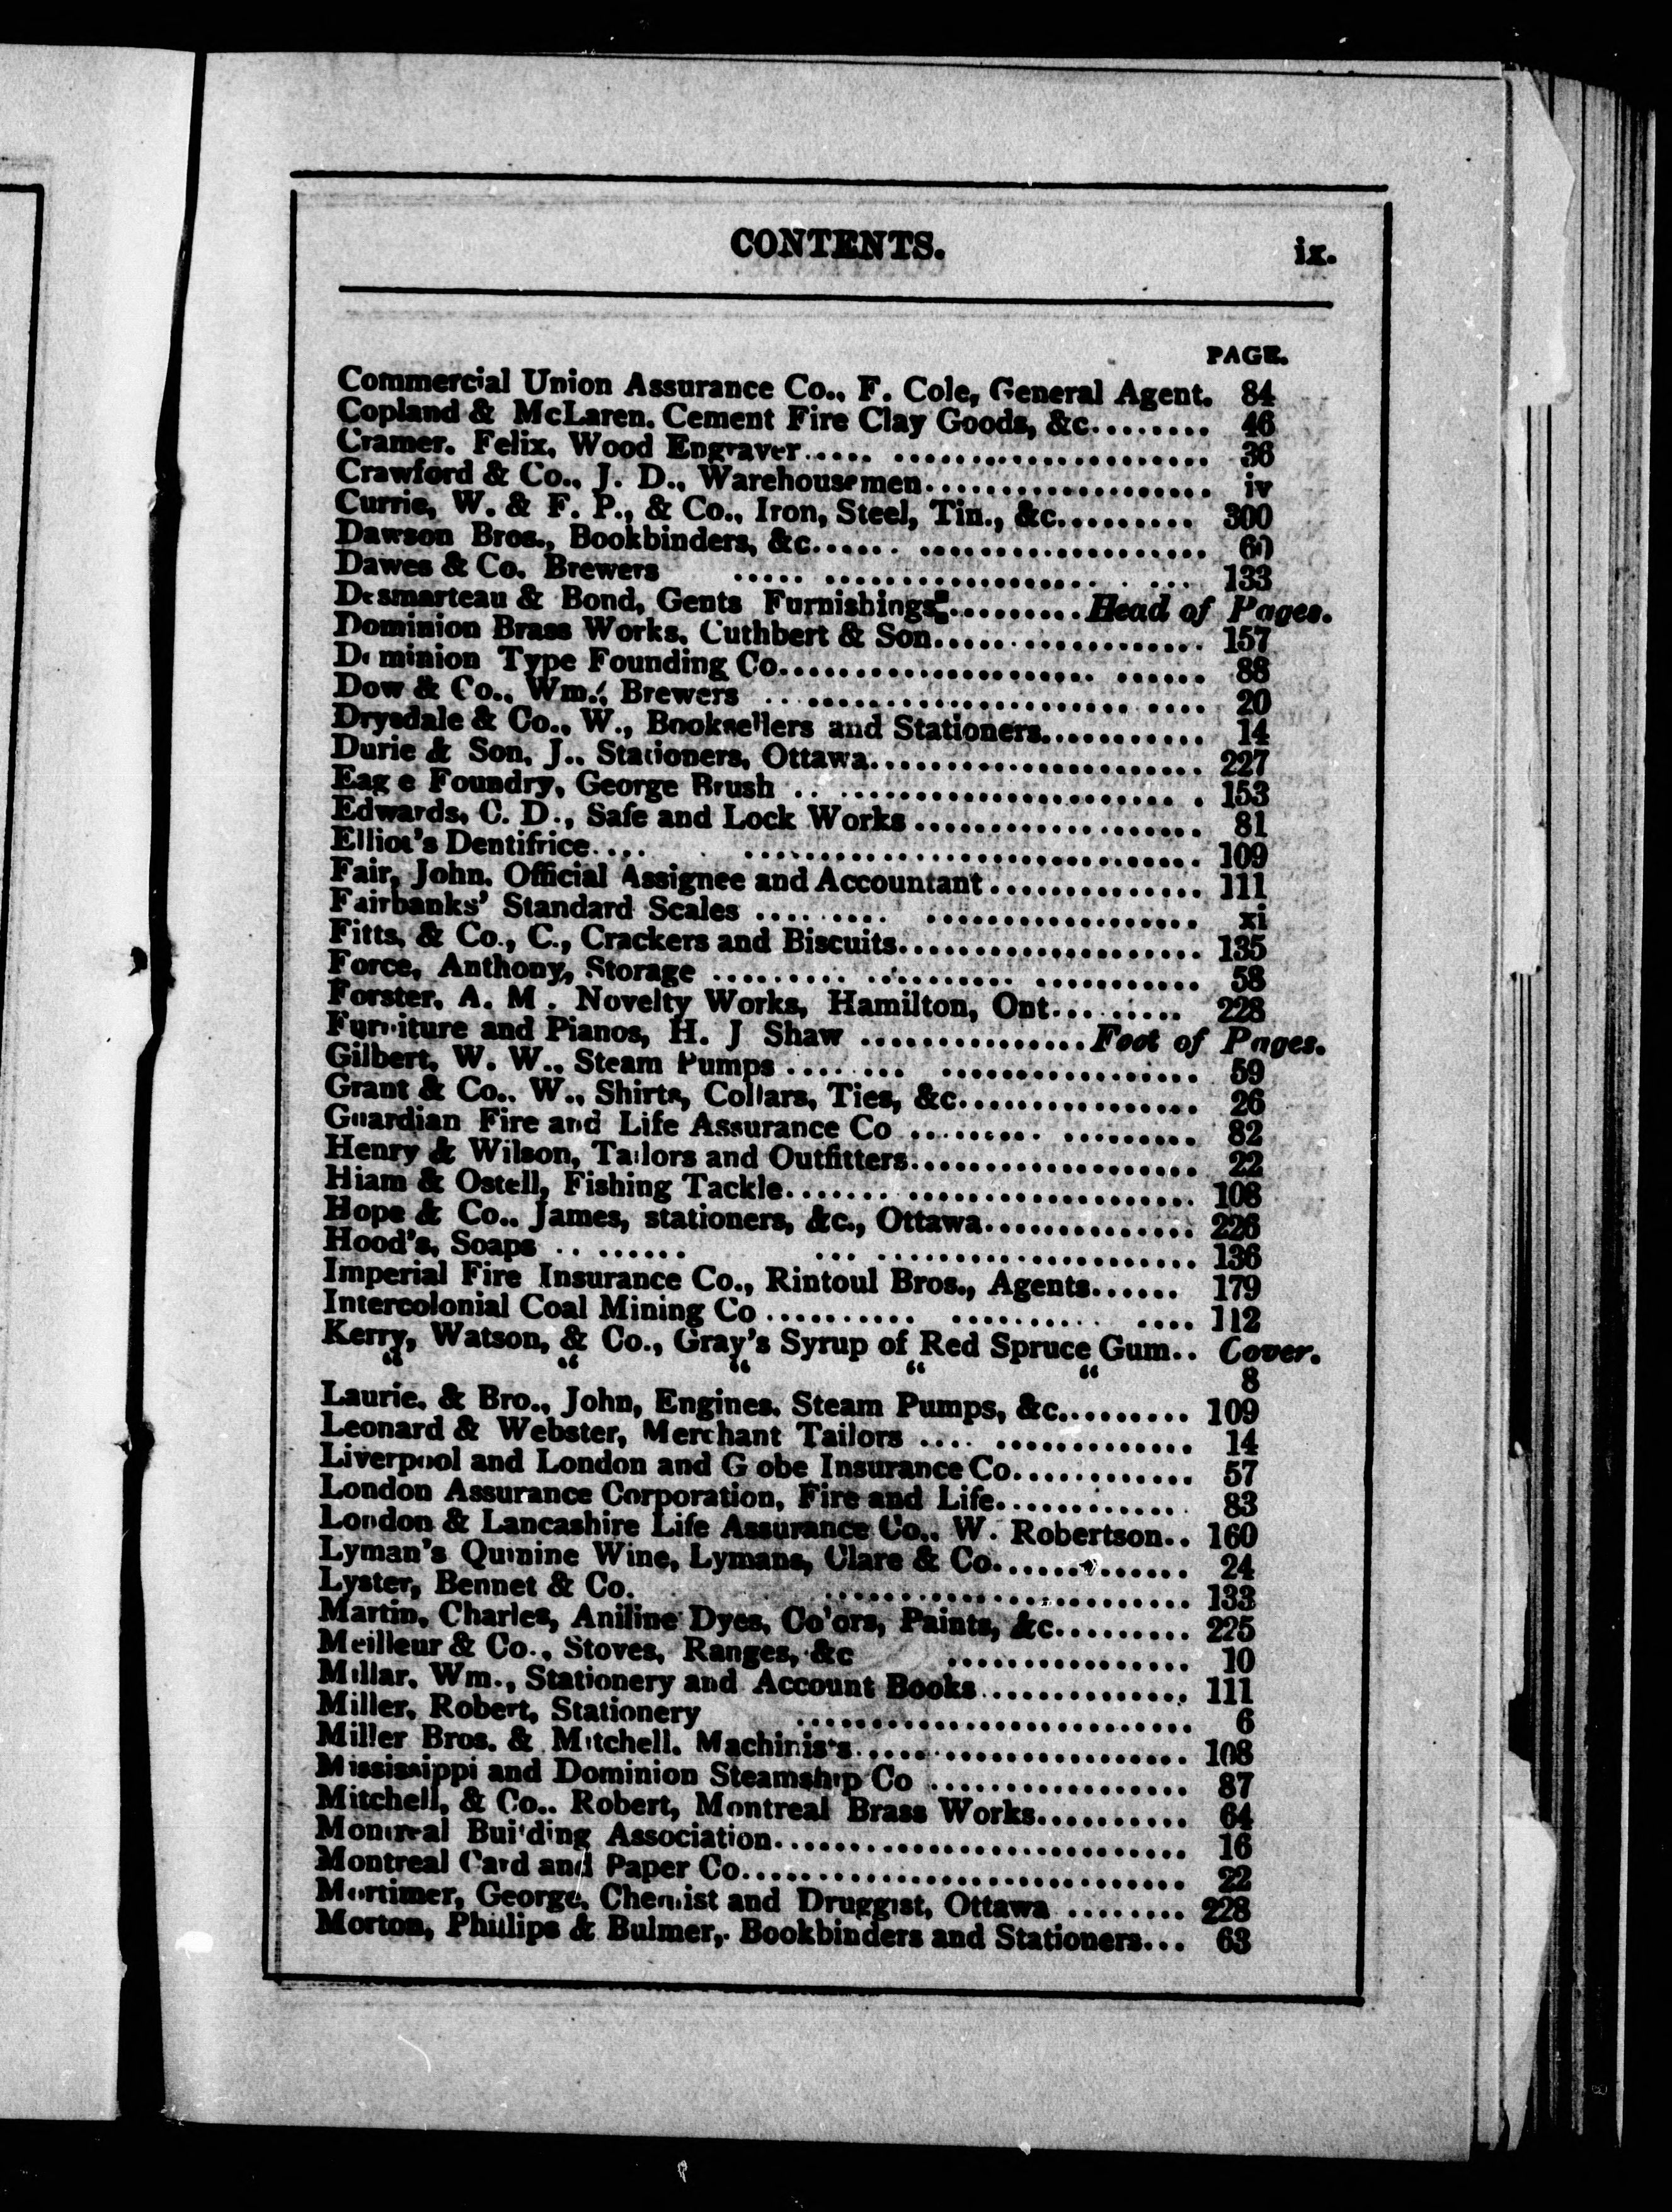 CONTENTS. ix.
PAGE.
Commercial Union Assurance Co., F. Cole, General Agent. 84
Copland & McLaren. Cement Fire Clay Goods, &c........ 46
Cramer. Felix. Wood Engraver..... ..................... 36
Crawford & Co., J. D., Warehousemen................... iv
Currie, W. & F. P., & Co., Iron, Steel, Tin., &c......... 300
Dawson Bros., Bookbinders, &c...... ................... 60
Dawes & Co. Brewers ..... .................. . ... 133
Desmarteau & Bond, Gents Furnishings..........Head of Pages.
Dominion Brass Works, Cuthbert & Son.................. 157
Dominion Type Founding Co..................... ...... 88
Dow & Co., Wm., Brewers ... ..................... .... 20
Drysdale & Co., W., Booksellers and Stationers........... 14
Durie & Son, J., Stationers, Ottawa...................... 227
Eag e Foundry, George Brush .. ...................... . 153
Edwards, C. D., Safe and Lock Works ................... 81
Elliot's Dentifrice.... .............................. 109
Fair, John. Official Assignee and Accountant .............. 111
Fairbanks' Standard Scales .... .... .................. xi
Fitts, & Co., C., Crackers and Biscuits.................... 135
Force, Anthony, Storage ......... .......... ........... 58
Forster, A. M . Novelty Works, Hamilton, Ont... ...... 228
Furniture and Pianos, H. J Shaw ...............Foot of Pages.
Gilbert, W. W., Steam Pumps .... ... ................. 59
Grant & Co., W., Shirts, Collars, Ties, &c................ 26
Guardian Fire and Life Assurance Co ......... ......... 82
Henry & Wilson, Tailors and Outfitters................... 22
Hiam & Ostell, Fishing Tackle....... ................... 108
Hope & Co., James, stationers, &c., Ottawa.............. 226
Hood's, Soaps .. ...... ... ..................... 136
Imperial Fire Insurance Co., Rintoul Bros., Agents...... 179
Intercolonial Coal Mining Co .......... .......... .... 112
Kerry, Watson, & Co., Gray's Syrup of Red Spruce Gum.. Cover.
“ “ “ “ “ 8
Laurie, & Bro., John, Engines. Steam Pumps, &c......... 109
Leonard & Webster, Merchant Tailors .... ............. 14
Liverpool and London and G obe Insurance Co............ 57
London Assurance Corporation, Fire and Life............. 83
London & Lancashire Life Assurance Co., W. Robertson.. 160
Lyman's Quinine Wine, Lymans, Clare & Co............. 24
Lyster, Bennet & Co. ........................ 133
Martin, Charles, Aniline Dyes, Co'ors, Paints, &c......... 225
Meilleur & Co., Stoves, Ranges, &c ................ 10
Millar, Wm., Stationery and Account Books.............. 111
Miller, Robert, Stationery .......................... 6
Miller Bros. & Mitchell. Machinists...................... 108
Mississippi and Dominion Steamship Co ................. 87
Mitchell, & Co., Robert, Montreal Brass Works.......... 64
Montreal Bui'ding Association........................... 16
Montreal Card and Paper Co............................. 22
Mortimer, George, Chemist and Druggist, Ottawa ........ 228
Morton, Phillips & Bulmer, Bookbinders and Stationers... 63